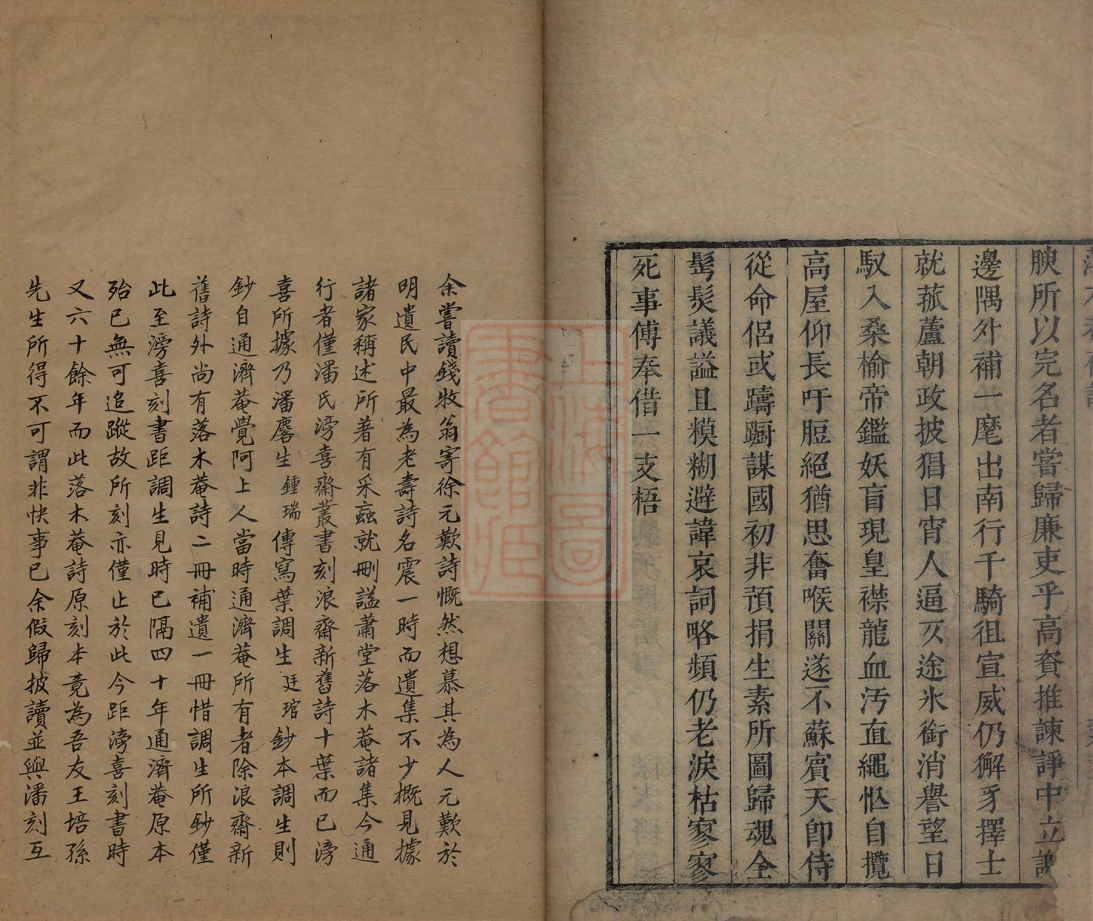 腴所以完名者嘗歸廉吏乎高賚推諫諍中立
邊隅外補一麾出南行千騎徂宣威仍獬豸擇士
就菰蘆朝政披猖日宵人逼仄途氷銜消譽望日
馭入桑榆帝鑑妖盲現皇襟龍血汚直繩怭自攬
高屋仰長吁脰絕猶思奮喉關遂不蘇賓天卽侍
從命侶或躊蹰謀國初非預捐生素所圖歸魂全
髩髮議謚且糢糊避諱哀詞略頻仍老淚枯寥寥
死事傳奉借一支梧
余嘗讀錢牧翁寄徐元歎詩慨然想慕其為人元歎於
明遺民中最為老壽詩名震一時而遺集不少概見據
諸家稱述所著有采蝱就刪謚蕭堂落木菴諸集今通
行者僅潘氏滂喜齋叢書刻浪齋新舊詩十葉而已滂
喜所據乃潘麐生鍾瑞傳寫葉調生廷琯鈔本調生則
鈔自通濟菴覺阿上人當時通濟菴所有者除浪齋新
舊詩外尚有落木菴詩二冊補遺一冊惜調生所鈔僅
此至滂喜刻書距調生見時已隔四十年通濟菴原本
殆已無可追蹤故所刻亦僅止於此今距滂喜刻書時
又六十餘年而此落木菴詩原刻本竟為吾友王培孫
先生所得不可謂非快事已余假歸披讀並與潘刻互
上海圖書館藏